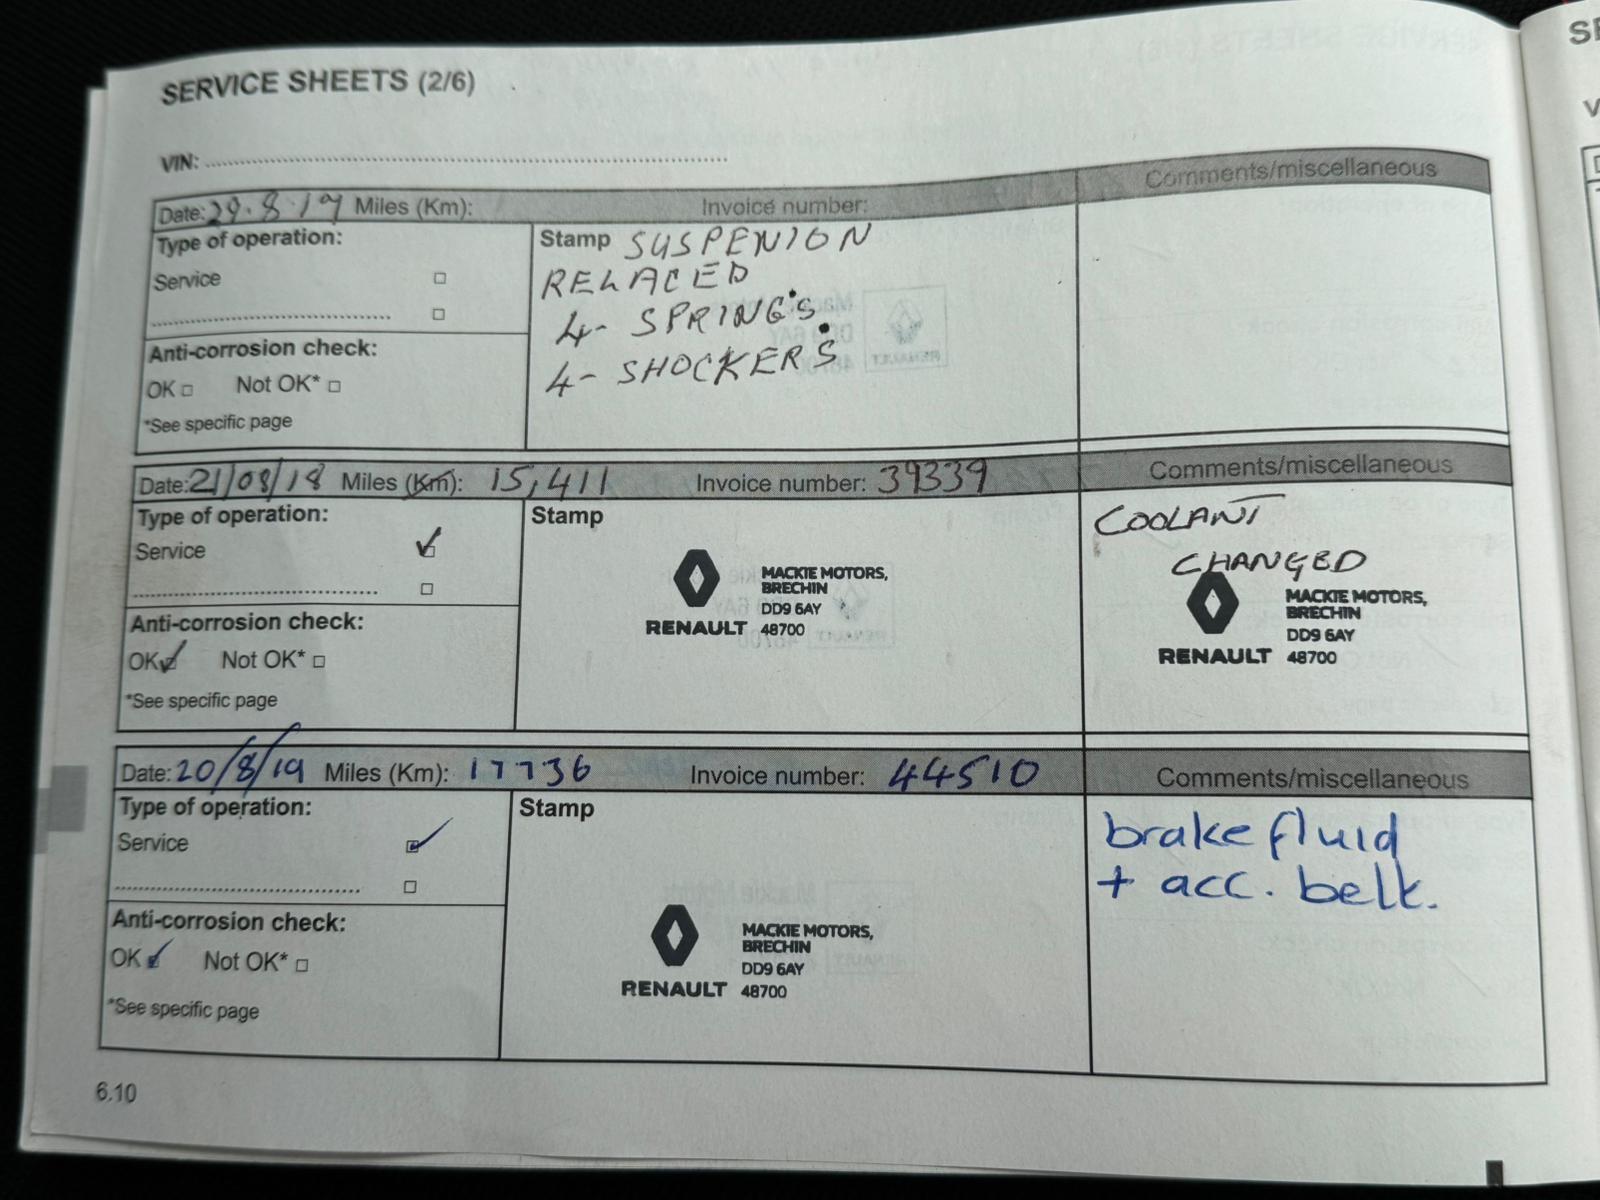 SERVICE SHEETS (2/6)
VIN:
Date: 29.8.19 Miles (Km): Invoice number: Comments/miscellaneous
Type of operation:
Service
Anti-corrosion check:
OK Not OK*
*See specific page
Stamp SUSPENION
RELACED
4- SPRING'S
4- SHOCKER'S
Date: 21/08/18 Miles (Km): 15,411 Invoice number: 39339 Comments/miscellaneous
Type of operation:
Service
Anti-corrosion check:
OK Not OK*
*See specific page
Stamp
MACKIE MOTORS,
BRECHIN
DD9 6AY
RENAULT 48700
COOLANT
CHANGED
MACKIE MOTORS,
BRECHIN
DD9 6AY
RENAULT 48700
Date: 20/8/19 Miles (Km): 17736 Invoice number: 44510 Comments/miscellaneous
Type of operation:
Service
Anti-corrosion check:
OK Not OK*
*See specific page
Stamp
MACKIE MOTORS,
BRECHIN
DD9 6AY
RENAULT 48700
brake fluid
+ acc. belt.
6.10